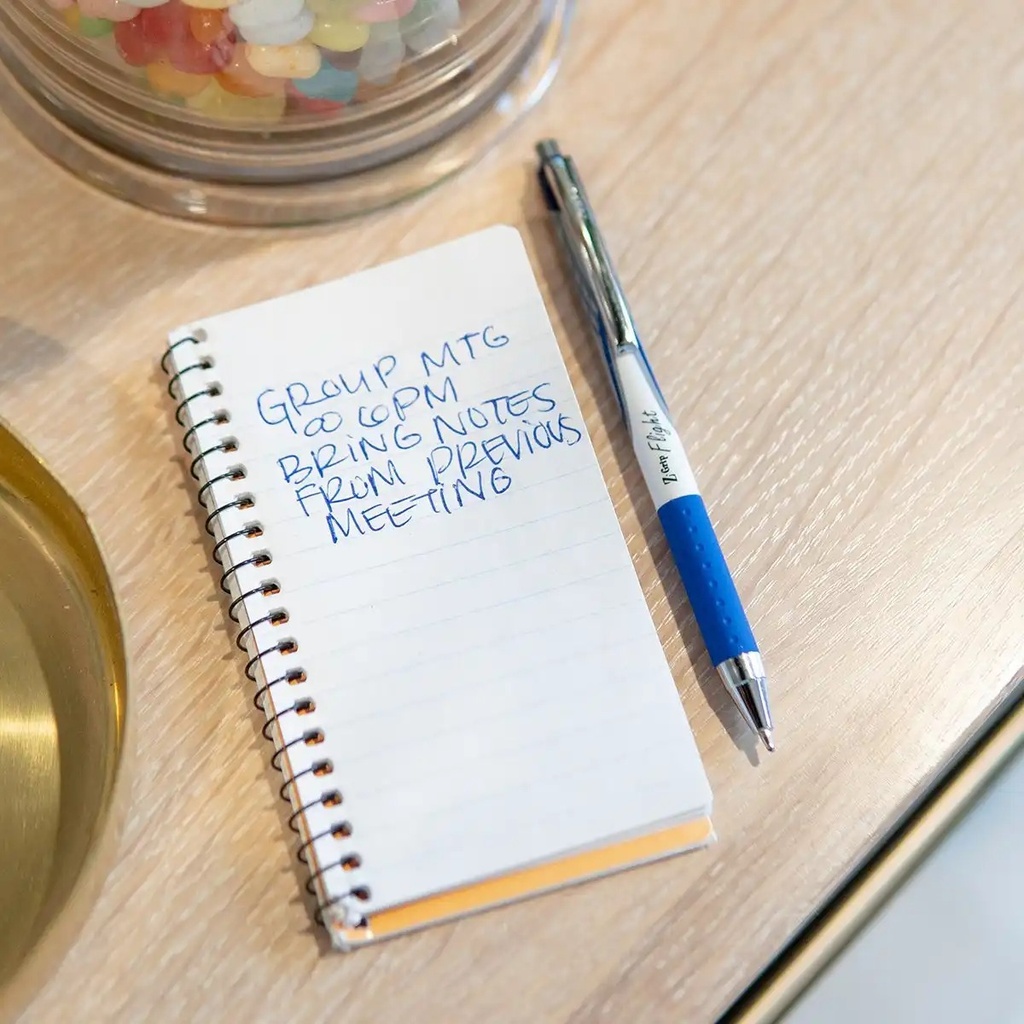 GROUP MTG
BRING NOTES
FROM PREVIOUS
MEETING
Z-Grip Flight